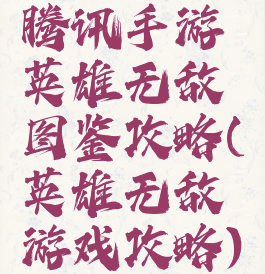 腾讯手游
英雄无敌
图鉴攻略(
英雄无敌
游戏攻略)